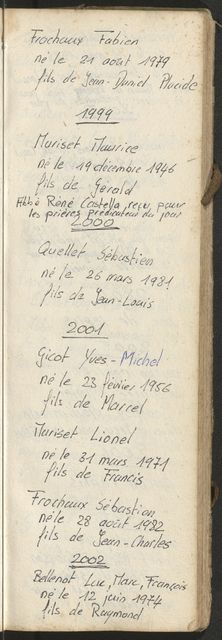 Frochaux Fabien
né le 21 août 1979
fils de Jean-Daniel Placide
1999
Mariset Maurice
né le 19 décembre 1946
fils de Gérald
Abbé René Castella, reçu, pour
les prières prédicateur du jour
2000
Quellet Sébastien
né le 26 mars 1981
fils de Jean-Louis
2001
Gicot Yves-Michel
né le 23 février 1956
fils de Marcel
Mariset Lionel
né le 31 mars 1971
fils de Francis
Frochaux Sébastien
né le 28 août 1982
fils de Jean-Charles
2002
Bellenot Luc, Marc, François
né le 12 juin 1974
fils de Raymond